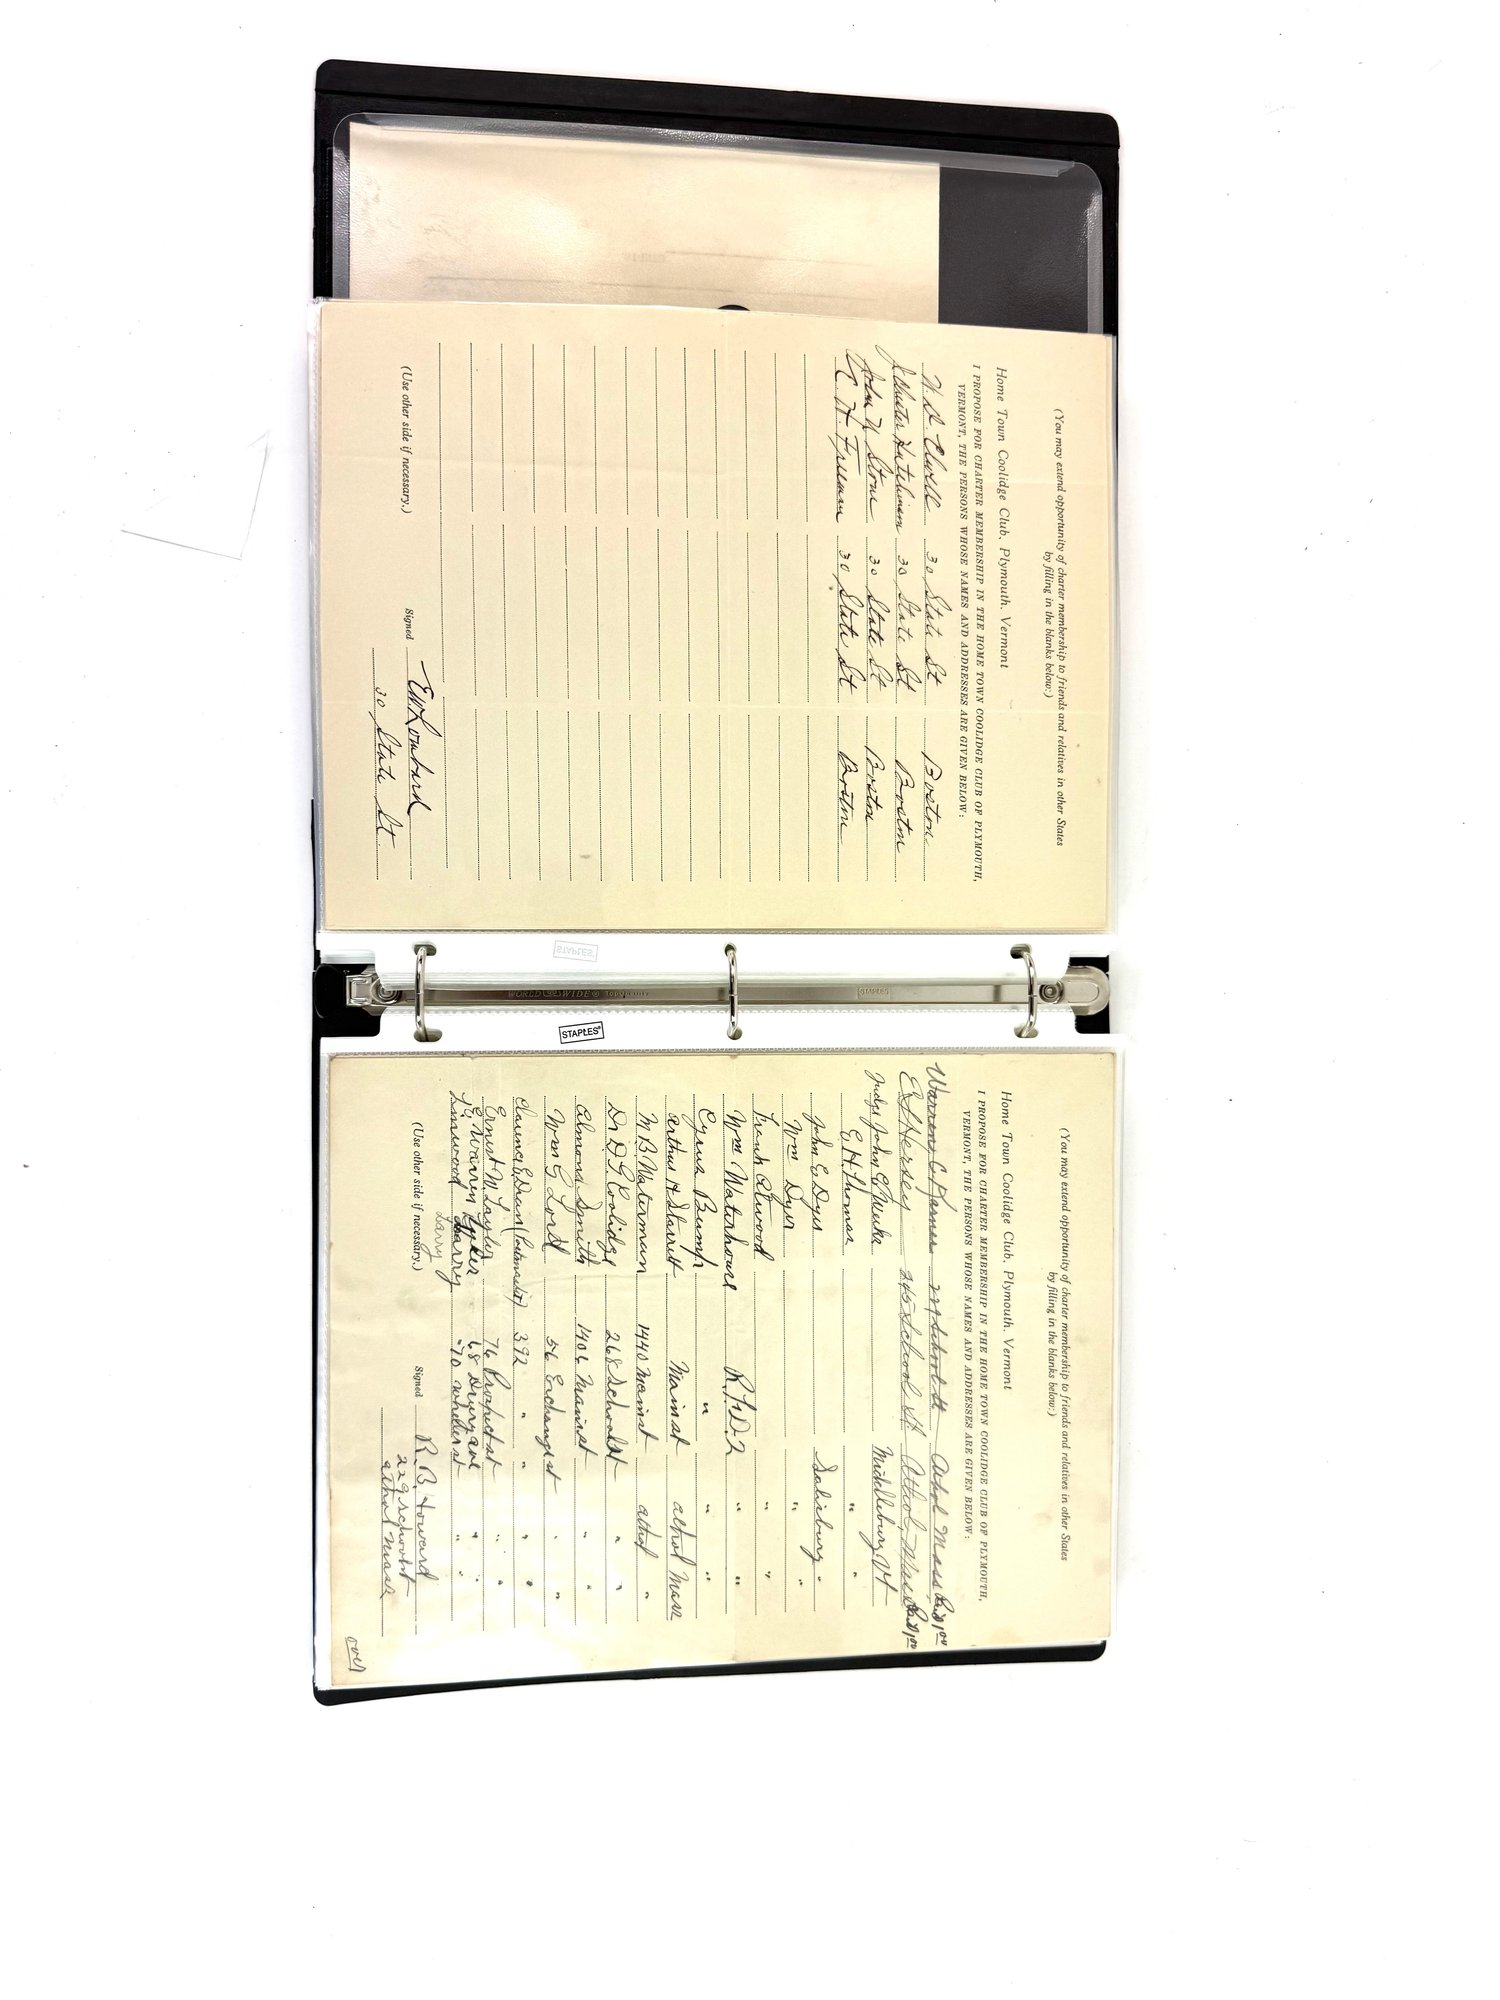 (You may extend opportunity of charter membership to friends and relatives in other States
by filling in the blanks below:)
Home Town Coolidge Club, Plymouth, Vermont
I PROPOSE FOR CHARTER MEMBERSHIP IN THE HOME TOWN COOLIDGE CLUB OF PLYMOUTH,
VERMONT, THE PERSONS WHOSE NAMES AND ADDRESSES ARE GIVEN BELOW:
H. D. Elwell 30 State St Boston
J Webster Hutchinson 30 State St Boston
John N Stone 30 State St Boston
C. H. Freeman 30 State St Boston
(Use other side if necessary.)
Signed E.W. Lombard
30 State St.
STAPLES
WORLD WIDE
STAPLES
STAPLES
(You may extend opportunity of charter membership to friends and relatives in other States
by filling in the blanks below:)
Home Town Coolidge Club, Plymouth, Vermont
I PROPOSE FOR CHARTER MEMBERSHIP IN THE HOME TOWN COOLIDGE CLUB OF PLYMOUTH,
VERMONT, THE PERSONS WHOSE NAMES AND ADDRESSES ARE GIVEN BELOW:
Warren C School st Athol Mass Paid 1.00
E S Hersey 245 School St. Athol, Mass Paid 1.00
Judge John E Weeks Middlebury Vt
E. H. Thomas " "
John E Dyer Salisbury "
Wm Dyer " "
Frank Atwood " "
Wm Waterhouse R.F.D. 2 " "
Cyrus Bump " " "
Arthur H Starrett Main st Athol Mass
M B Waterman 1440 Main st Athol "
Dr D G Coolidge 268 School st " "
Almond Smith 1406 Main st " "
Wm G Lord 56 Exchange st " "
Clarence E Dean (Postmaster) 392 " " " "
Ernest M. Taylor 76 Prospect st " "
E Warren Tyler 68 Drury ave " "
Linwood Barry 70 Wheeler st " "
Barry
(Use other side if necessary.)
Signed R. B. Howard
229 School st
Athol Mass
over